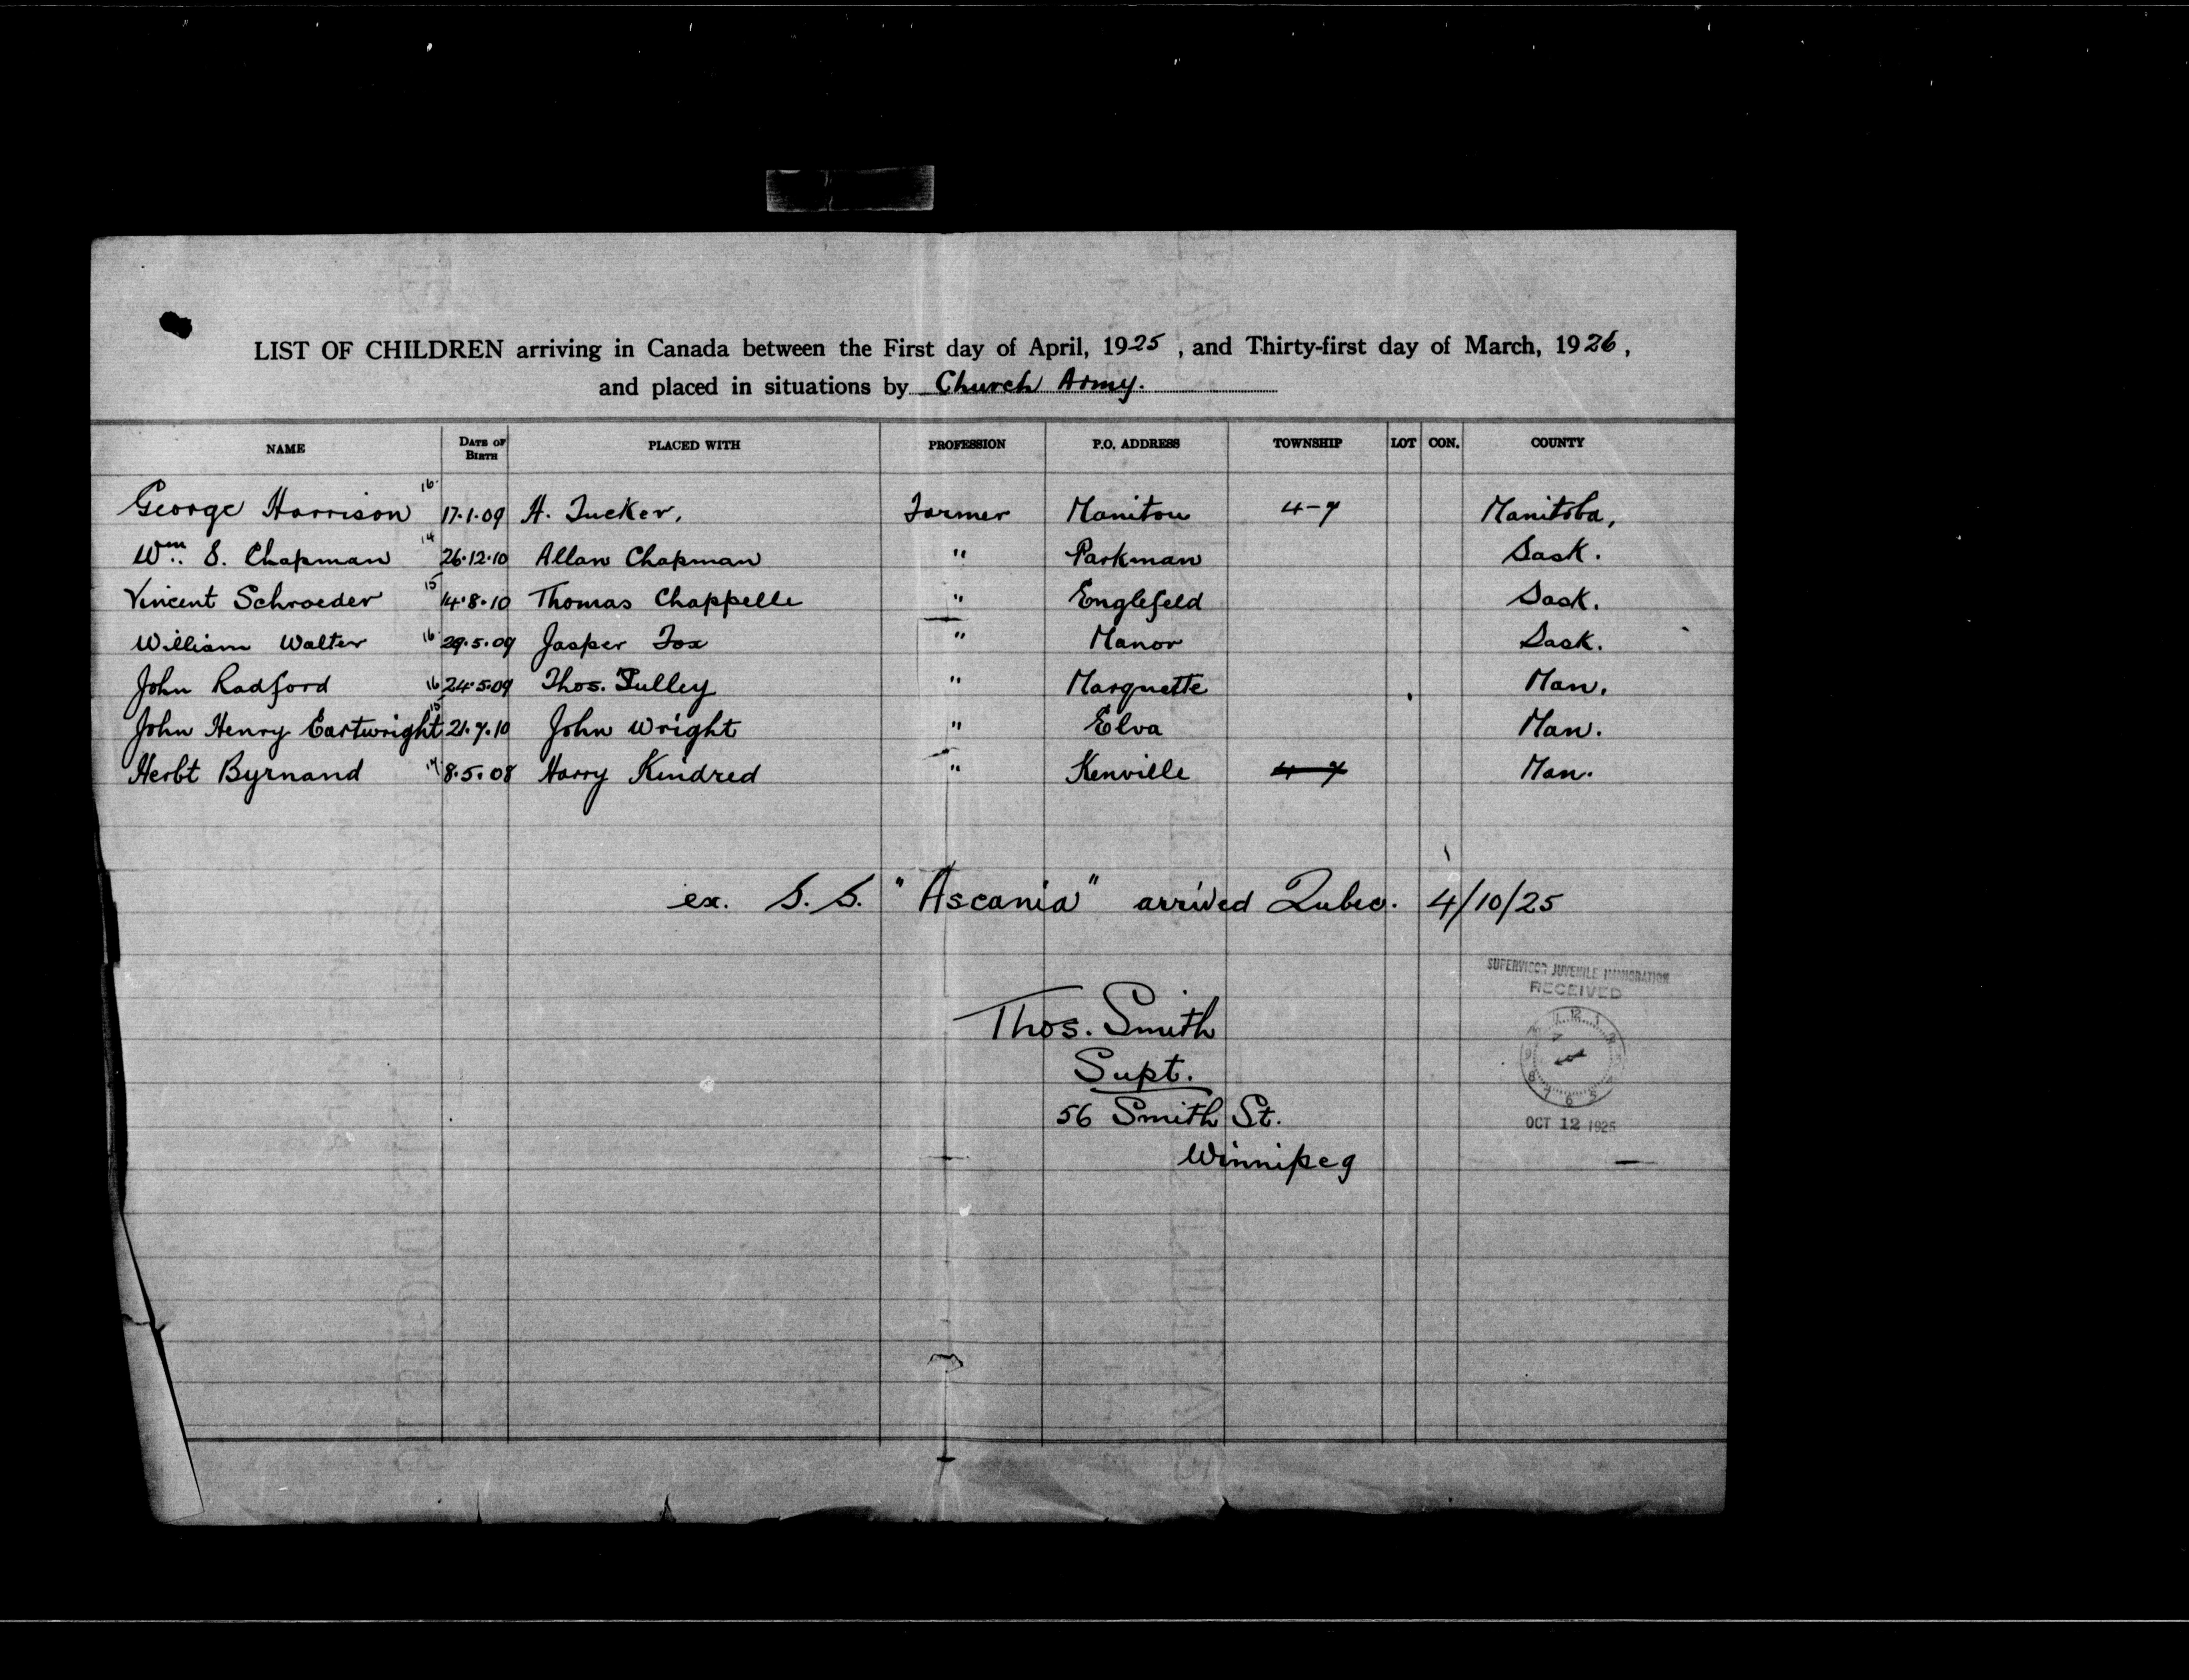 LIST OF CHILDREN arriving in Canada between the First day of April, 1925, and Thirty-first day of March, 1926,
and placed in situations by Church Army.
NAME DATE OF BIRTH PLACED WITH PROFESSION P.O. ADDRESS TOWNSHIP LOT CON. COUNTY
George Harrison 16 17.1.09 H. Tucker, Farmer Manitou 4-7 Manitoba,
Wm. S. Chapman 14 26.12.10 Allan Chapman " Parkman Sask.
Vincent Schroeder 15 14.8.10 Thomas Chappelle " Englefeld Sask.
William Walter 16 29.5.09 Jasper Fox " Manor Sask.
John Radford 16 24.5.09 Thos. Tulley " Marquette Man.
John Henry Cartwright 15 21.7.10 John Wright " Elva Man.
Herbt Byrnand 17 8.5.08 Harry Kindred " Kenville 4-7 Man.
ex. S.S. "Ascania" arrived Qubec. 4/10/25
SUPERVISOR JUVENILE IMMIGRATION
RECEIVED
Thos. Smith
Supt.
56 Smith St.
OCT 12 1925
Winnipeg